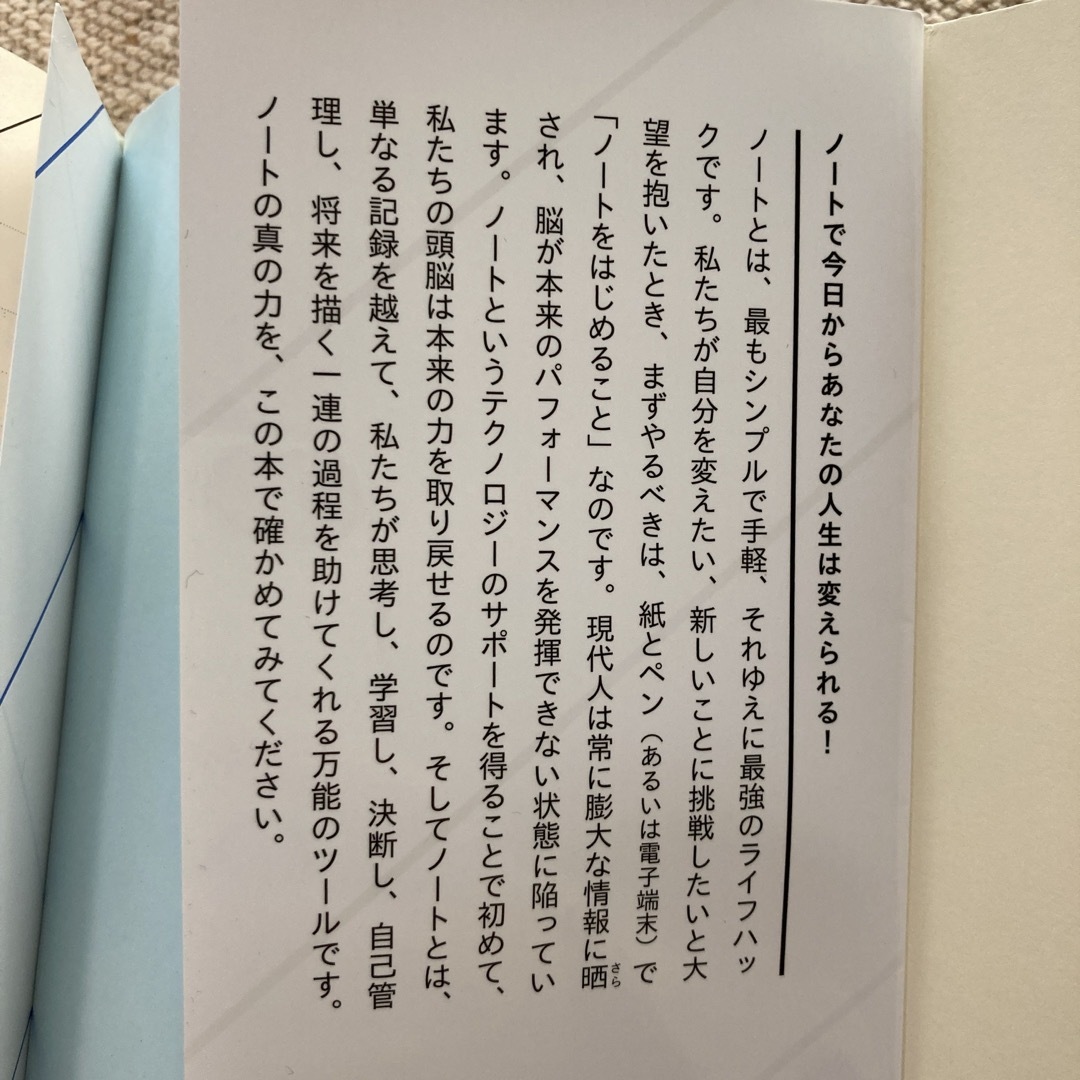 ノートで今日からあなたの人生は変えられる！
ノートとは、最もシンプルで手軽、それゆえに最強のライフハッ
クです。私たちが自分を変えたい、新しいことに挑戦したいと大
望を抱いたとき、まずやるべきは、紙とペン（あるいは電子端末）で
「ノートをはじめること」なのです。現代人は常に膨大な情報に晒さら
され、脳が本来のパフォーマンスを発揮できない状態に陥ってい
ます。ノートというテクノロジーのサポートを得ることで初めて、
私たちの頭脳は本来の力を取り戻せるのです。そしてノートとは、
単なる記録を越えて、私たちが思考し、学習し、決断し、自己管
理し、将来を描く一連の過程を助けてくれる万能のツールです。
ノートの真の力を、この本で確かめてみてください。